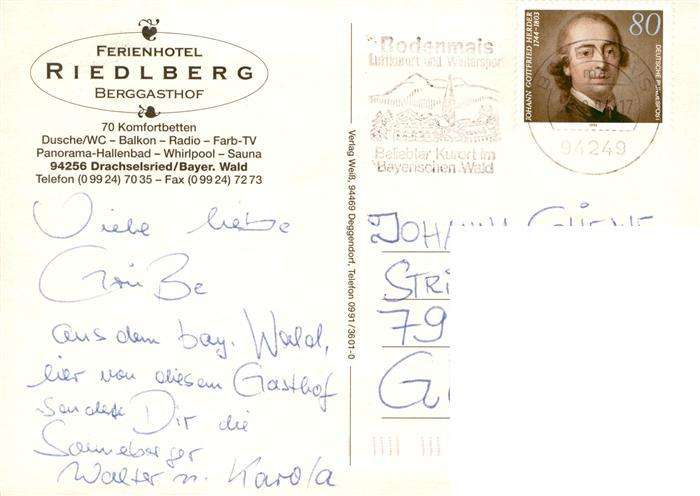 FERIENHOTEL
RIEDLBERG
BERGGASTHOF
70 Komfortbetten
Dusche/WC – Balkon – Radio – Farb-TV
Panorama-Hallenbad – Whirlpool – Sauna
94256 Drachselsried/Bayer. Wald
Telefon (0 99 24) 70 35 – Fax (0 99 24) 72 73
Viele liebe
Grüße
aus dem bay. Wald,
hier von diesem Gasthof
senden Dir die
Sonneberger
Walter u. Karola
Verlag Weiß, 94469 Deggendorf, Telefon 0991/3601-0
Bodenmais
Luftkurort und Wintersport
Beliebter Kurort im
Bayerischen Wald
JOHANN GOTTFRIED HERDER
1744-1803
80
DEUTSCHE BUNDESPOST
94249
JOHANN
STRI
79
G